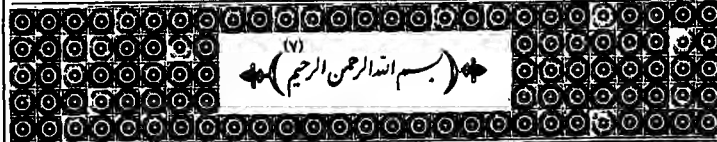 (٧)
بسم الله الرحمن الرحيم